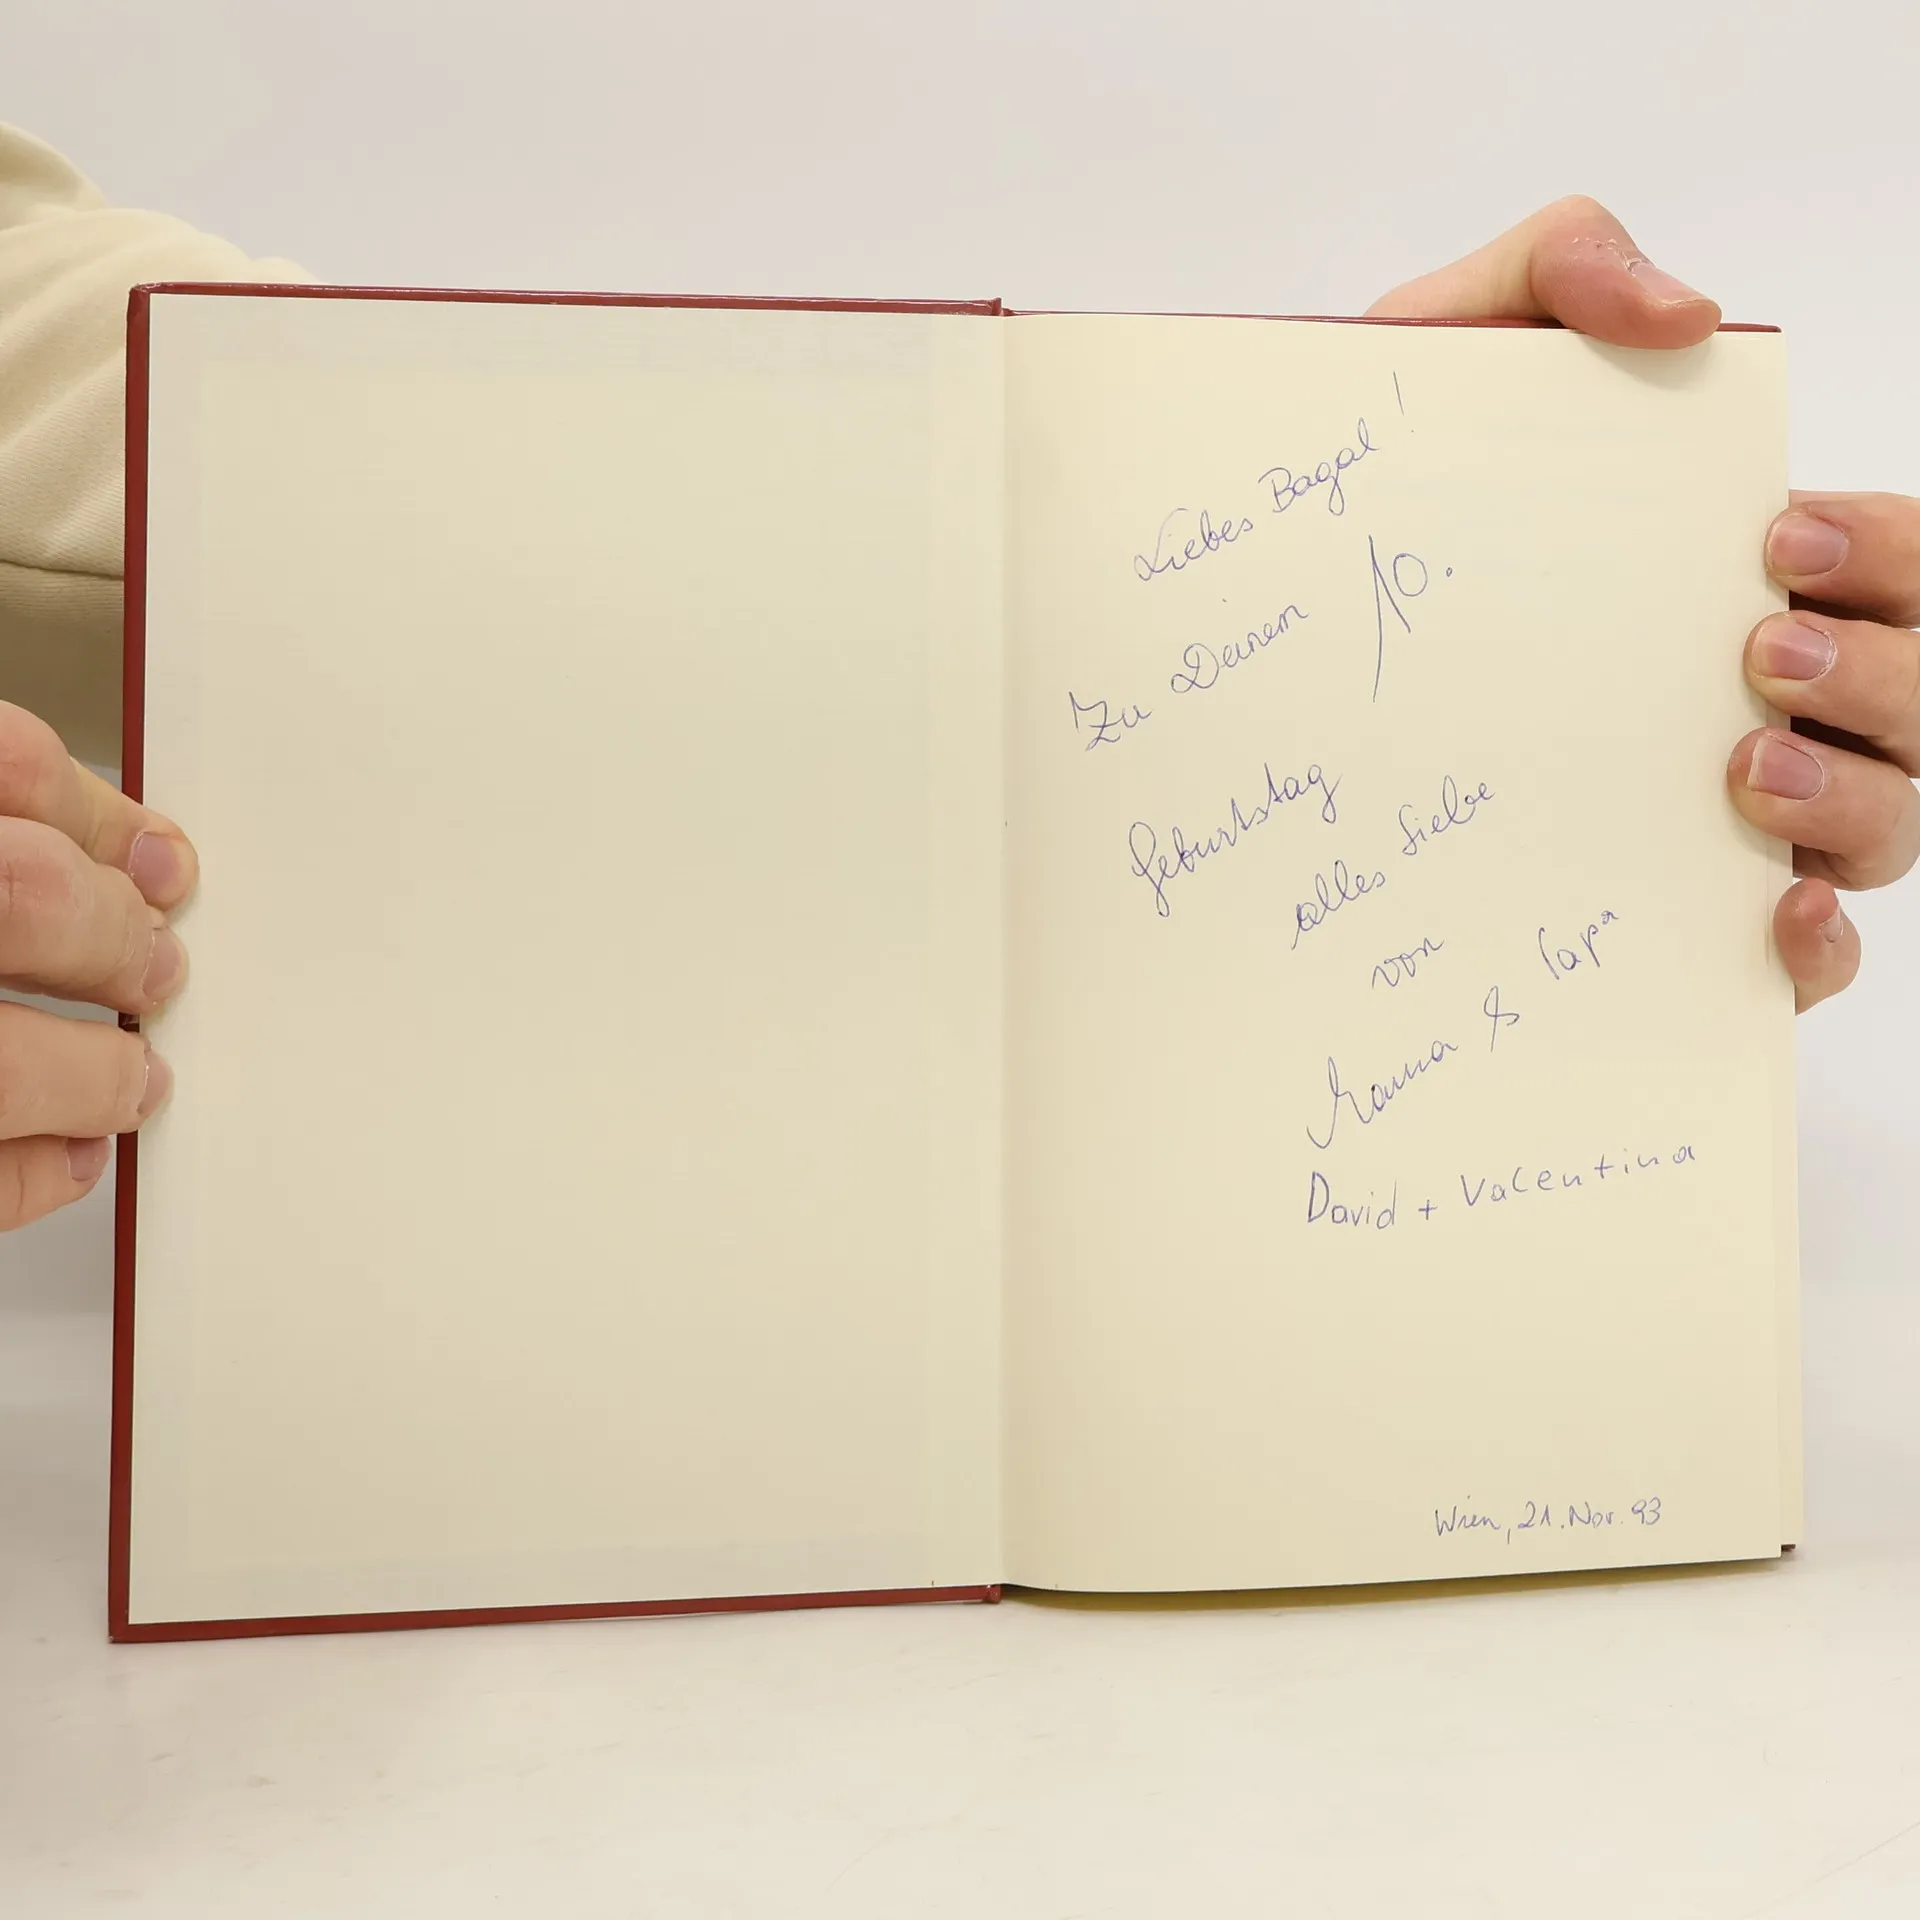 Liebes Bagal!
Zu Deinem 10.
Geburtstag
alles Liebe
von
Mama & Papa
David + Valentina
Wien, 21. Nov. 93